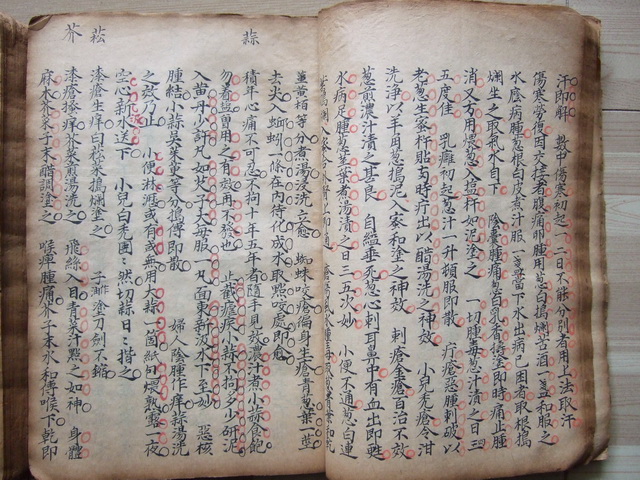 汗即解　數中傷寒初起一二日不能分別者用上法取汗
傷寒勞復因交接者腹痛卵腫用葱白搗爛苦酒一盞和服之
水癊病腫葱根白皮煮汁服一盞當下水出病已困者取根搗
爛坐之取氣水自下　陰囊腫痛葱白乳香搗塗即時痛止腫
消又方用煨葱入鹽杵如泥塗之　一切腫毒葱汁漬之日三四
五度佳　乳癰初起葱汁一升頓服即散　疔瘡惡腫刺破以
老葱生蜜杵貼兩時疔出以醋湯洗之神效　小兒禿瘡冷泔
洗淨以羊角葱搗泥入蜜和塗之神效　刺瘡金瘡百治不效
葱煎濃汁漬之甚良　自縊垂死葱心刺耳鼻中有血出即甦
水病足腫葱莖葉煮湯漬之日三五次妙　小便不通葱白連
蒜
薑黃栢等分煮湯浸洗立愈　蜘蛛咬瘡徧身生瘡青葱葉一莖
去尖入蚯蚓一條在內待化成水取點咬處即愈
積年心痛不可忍不拘十年五年者隨手見效濃汁煮小蒜食飽
勿着鹽曽用之有效再不發也　止截瘧疾小蒜不拘多少研泥
入黃丹少許丸如芡子大每服一丸面東新汲水下至妙　惡核
腫結小蒜吳茱萸等分搗傅即散　婦人陰腫作痒蒜湯洗
之效乃止　小便淋瀝或有或無用大蒜一箇紙包煨熟露一夜
空心新水送下　小兒白禿團團然切蒜日日揩之
菘
漆瘡生痒白菘菜搗爛塗之　子油塗刀劍不鏽
芥
漆瘡搔痒芥菜煎湯洗之　飛絲入目青菜汁點之如神　身體
麻木芥菜子末醋調塗之　喉痺腫痛芥子末水和傅喉下乾即